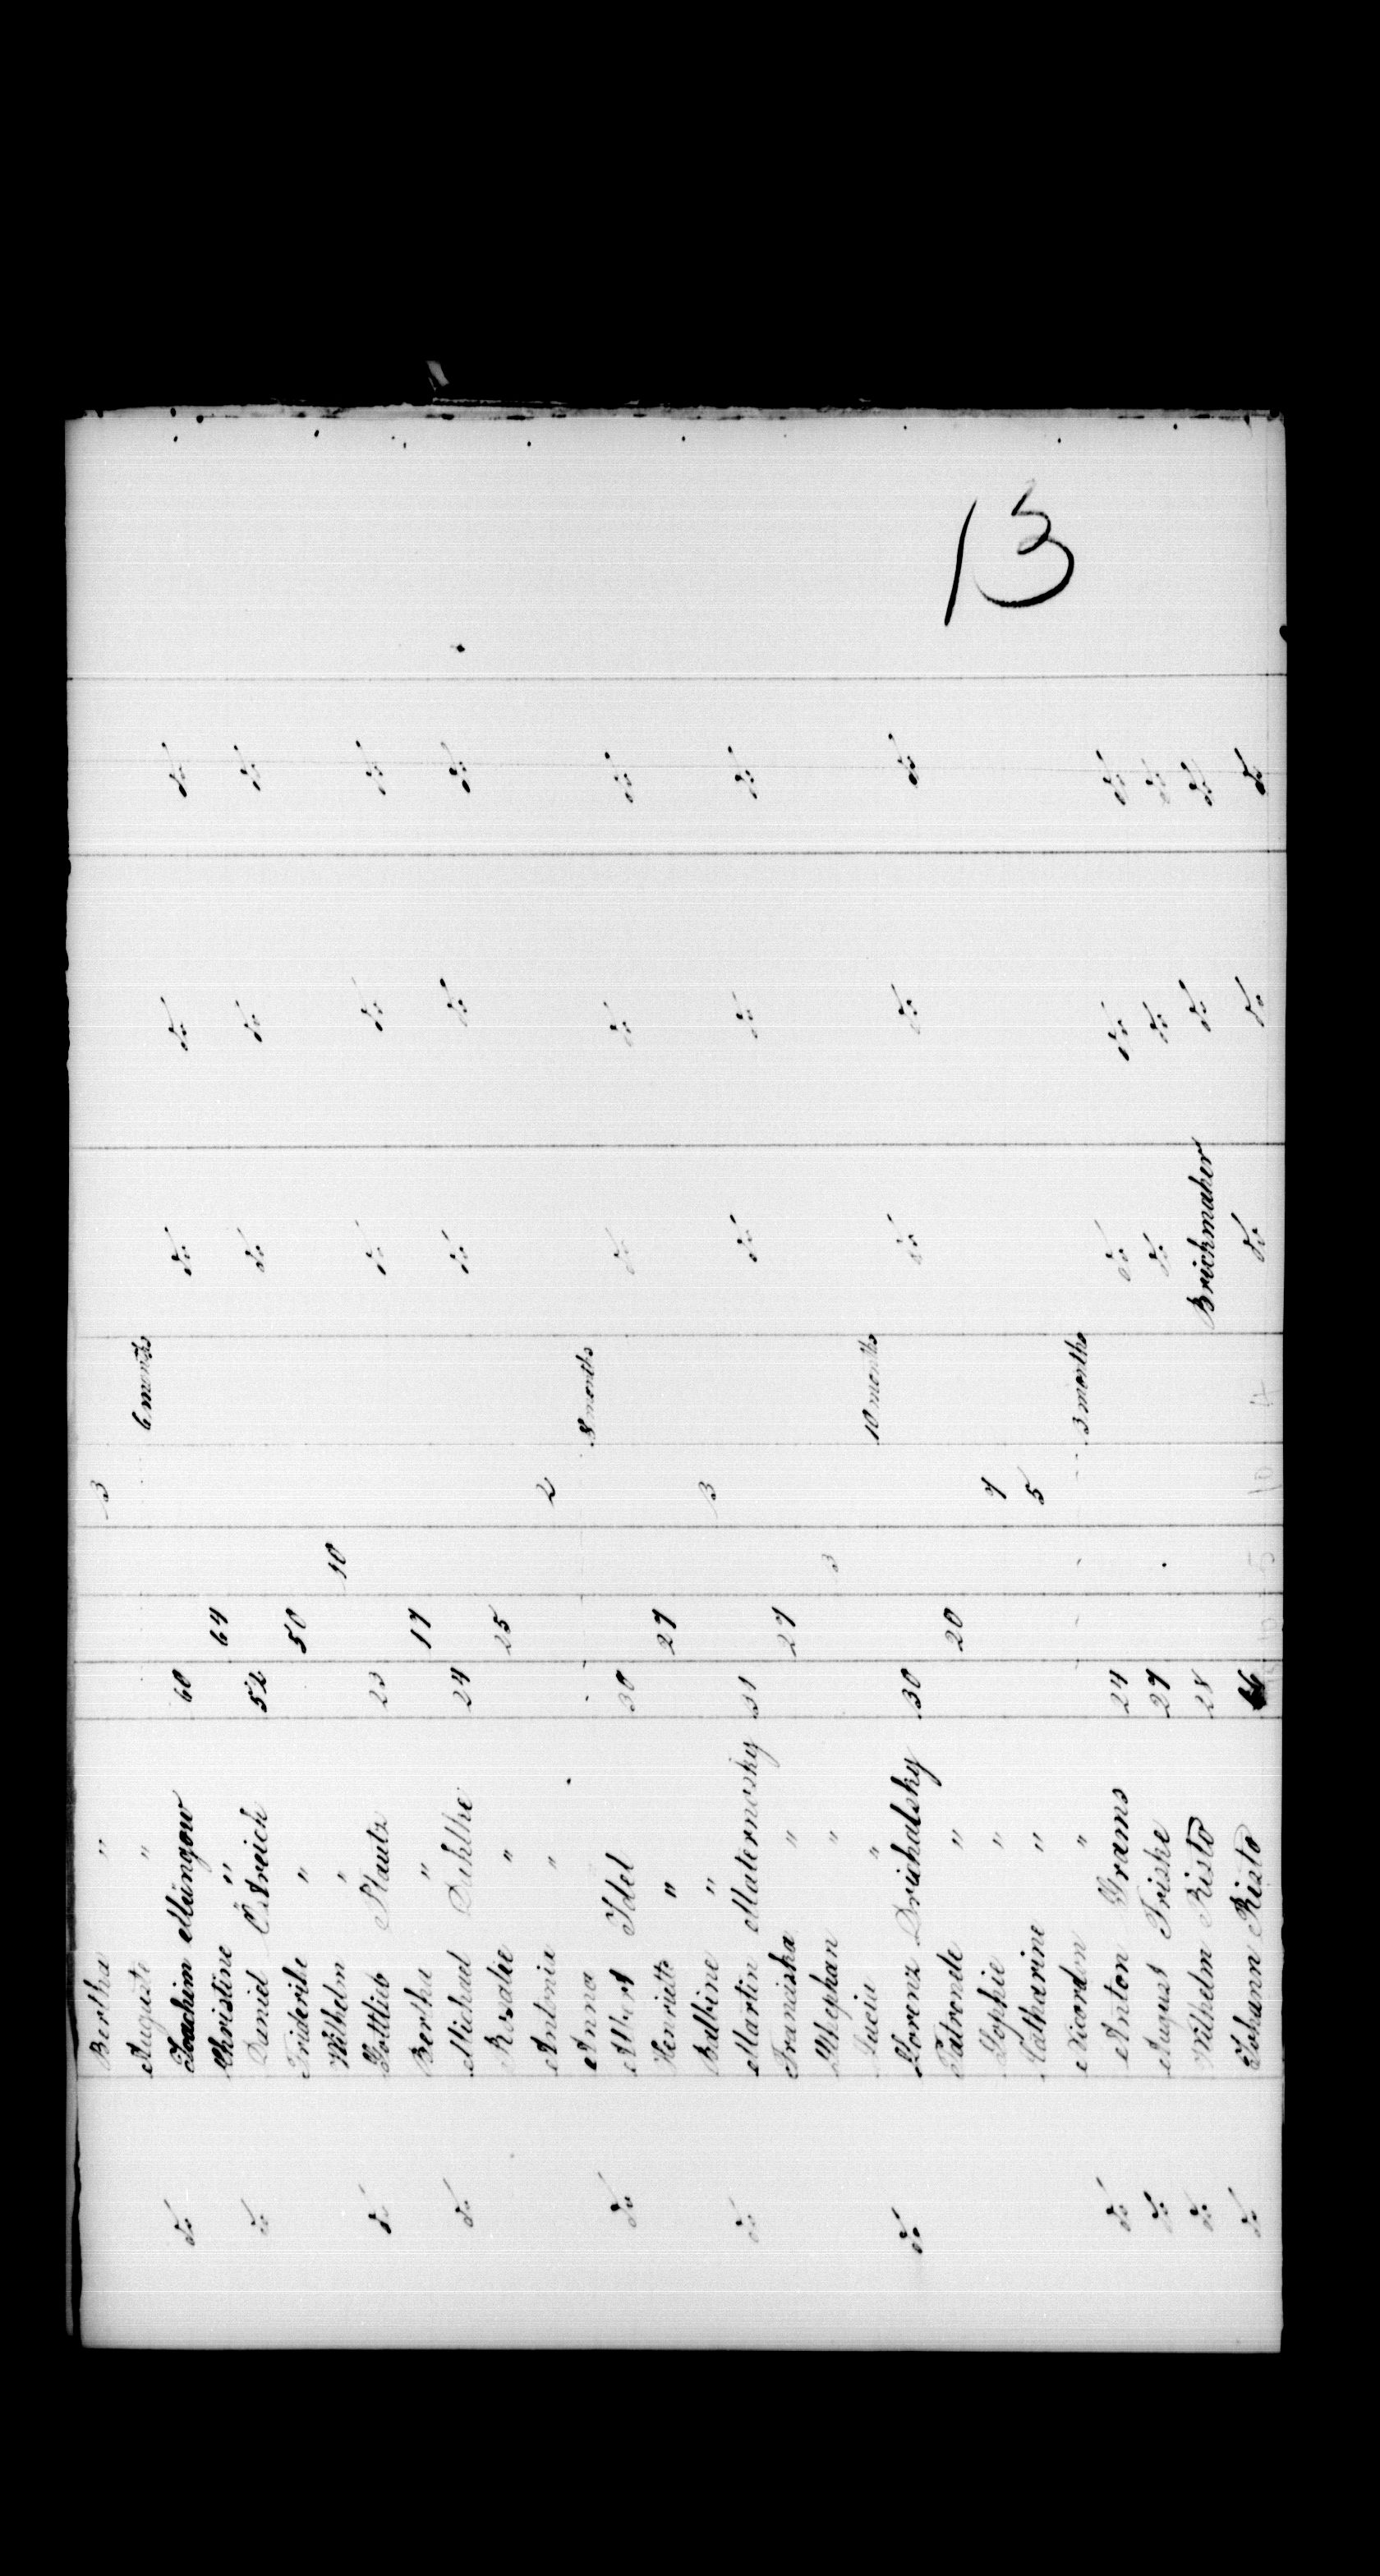 13
Bertha " 3
Auguste " 6 months
do Joachim Müngow 60 do do do
Christine " 64
do Daniel Östreich 52 do do do
Friderike " 50
Wilhelm " 10
do Gottlieb Plautz 23 do do do
Bertha " 17
do Michael 24 do do do
Rosalie " 25
Antonia " 2
Anna 8 months
do Albert Idel 30 do do do
Henriette " 27
Balbine " 3
do Martin Maternosky 31 do do do
Franciska " 27
Sthephan " 3
Lucia " 10 months
do Lorenz Druhalsky 30 do do do
" 20
Sophie " 7
Catharine " 5
" 3 months
do Anton Grams 24 do do do
do August Friske 27 do do do
do Wilhelm Risto 28 Brickmaker do do
do Johann Risto do do do